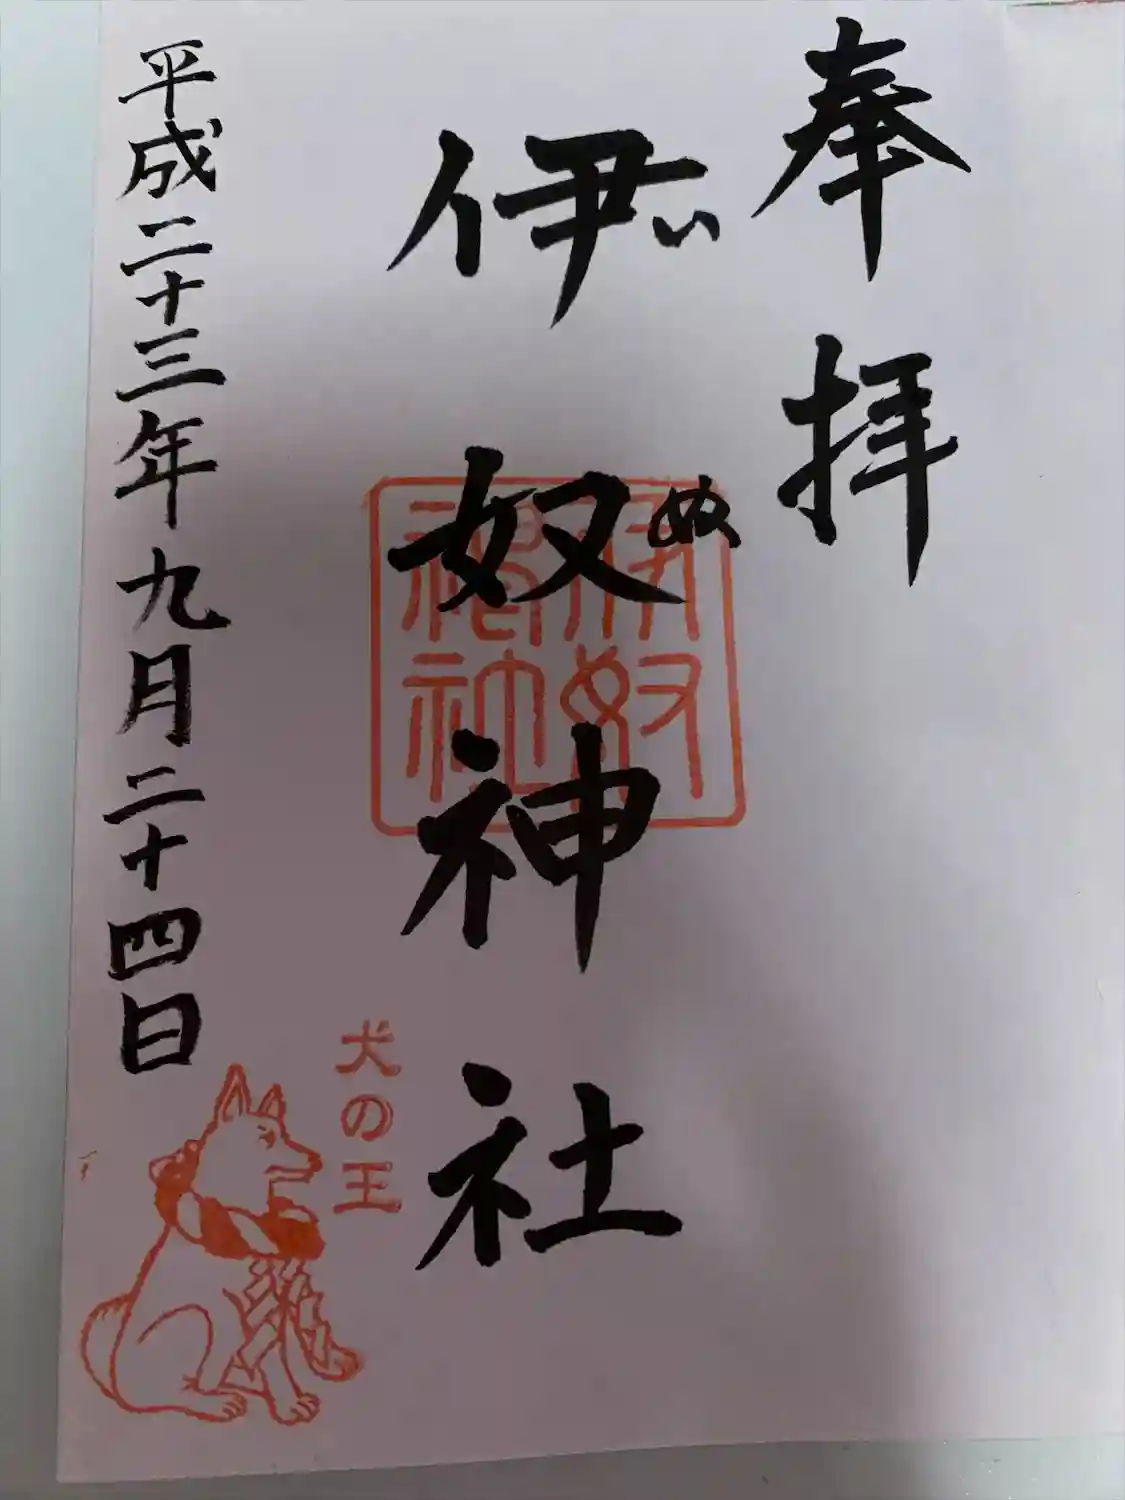 奉拝
伊奴神社
いぬ
伊奴神社
平成二十三年九月二十四日
犬の王